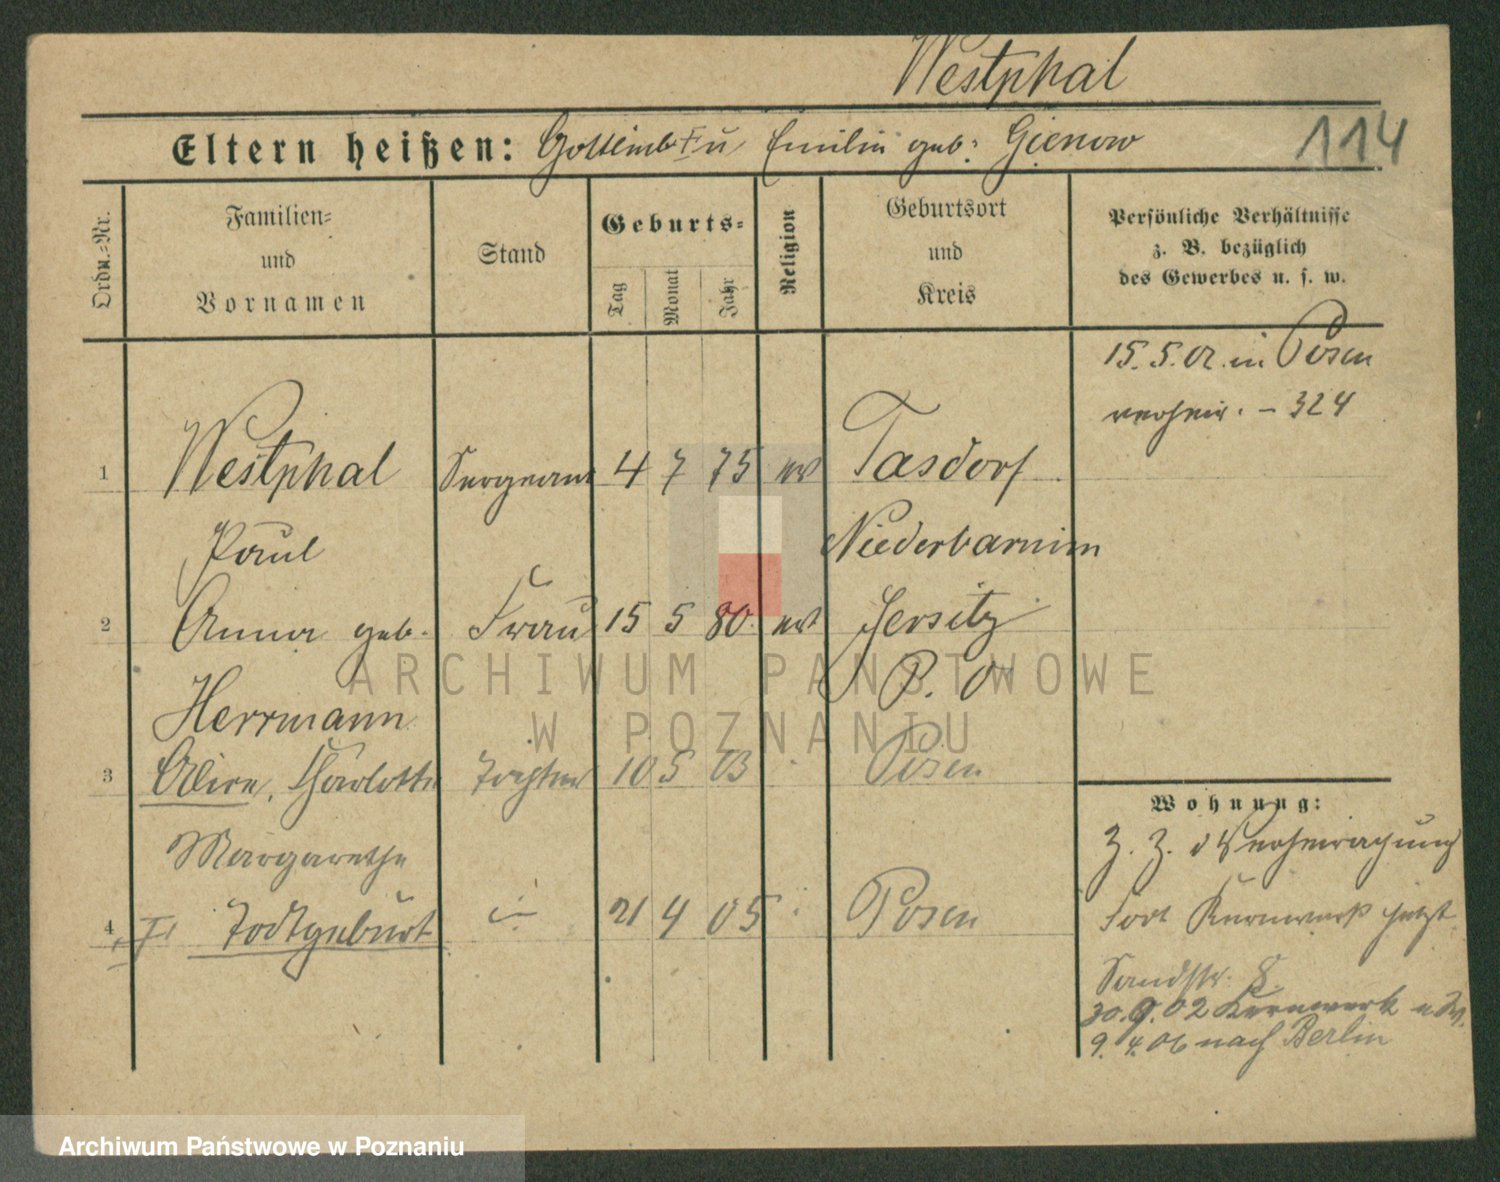 Westphal
Eltern heißen: Gottlieb † u Emilie geb: Gienow
114
Ordn.-Nr.
Familien- und Vornamen
Stand
Geburts-
Tag
Monat
Jahr
Religion
Geburtsort und Kreis
Persönliche Verhältnisse
z. B. bezüglich
des Gewerbes u. s. w.
15. 5. 02. in Posen
verheir. - 324
1 Westphal Sergeant 4 7 75 ev Tasdorf
Paul Niederbarnim
2 Anna geb. Frau 15 5 80 ev Jersitz
Herrmann P. O
3 Charlotte Tochter 10 5 03 Posen
Margarethe
4 † Todtgeburt 21 4 05 Posen
Wohnung:
Z. Z. d Verheirathung
Fort Kernwerk jetzt
Sandstr. 8.
30.9.02 Kernwerk
9. 4. 06 nach Berlin
ARCHIWUM PAŃSTWOWE
W POZNANIU
Archiwum Państwowe w Poznaniu